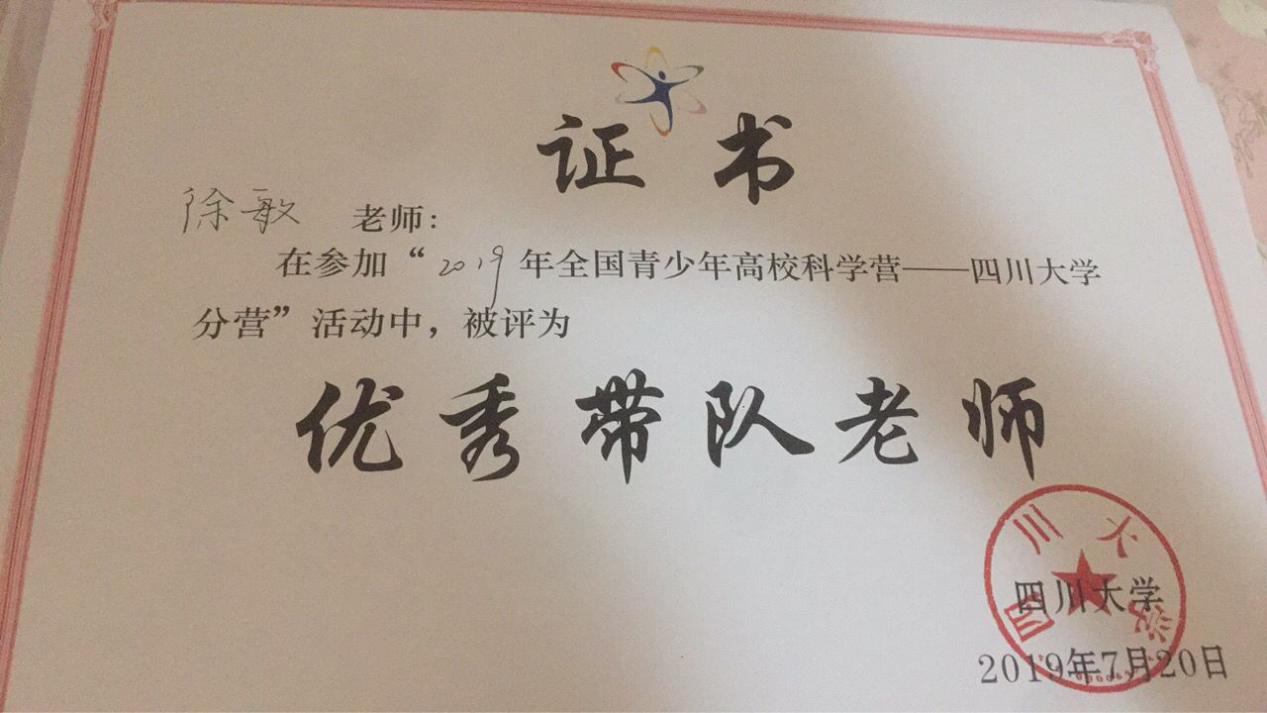 证书
徐敏 老师：
在参加“2019年全国青少年高校科学营——四川大学
分营”活动中，被评为
优秀带队老师
四川大学
四川大学
2019年7月20日